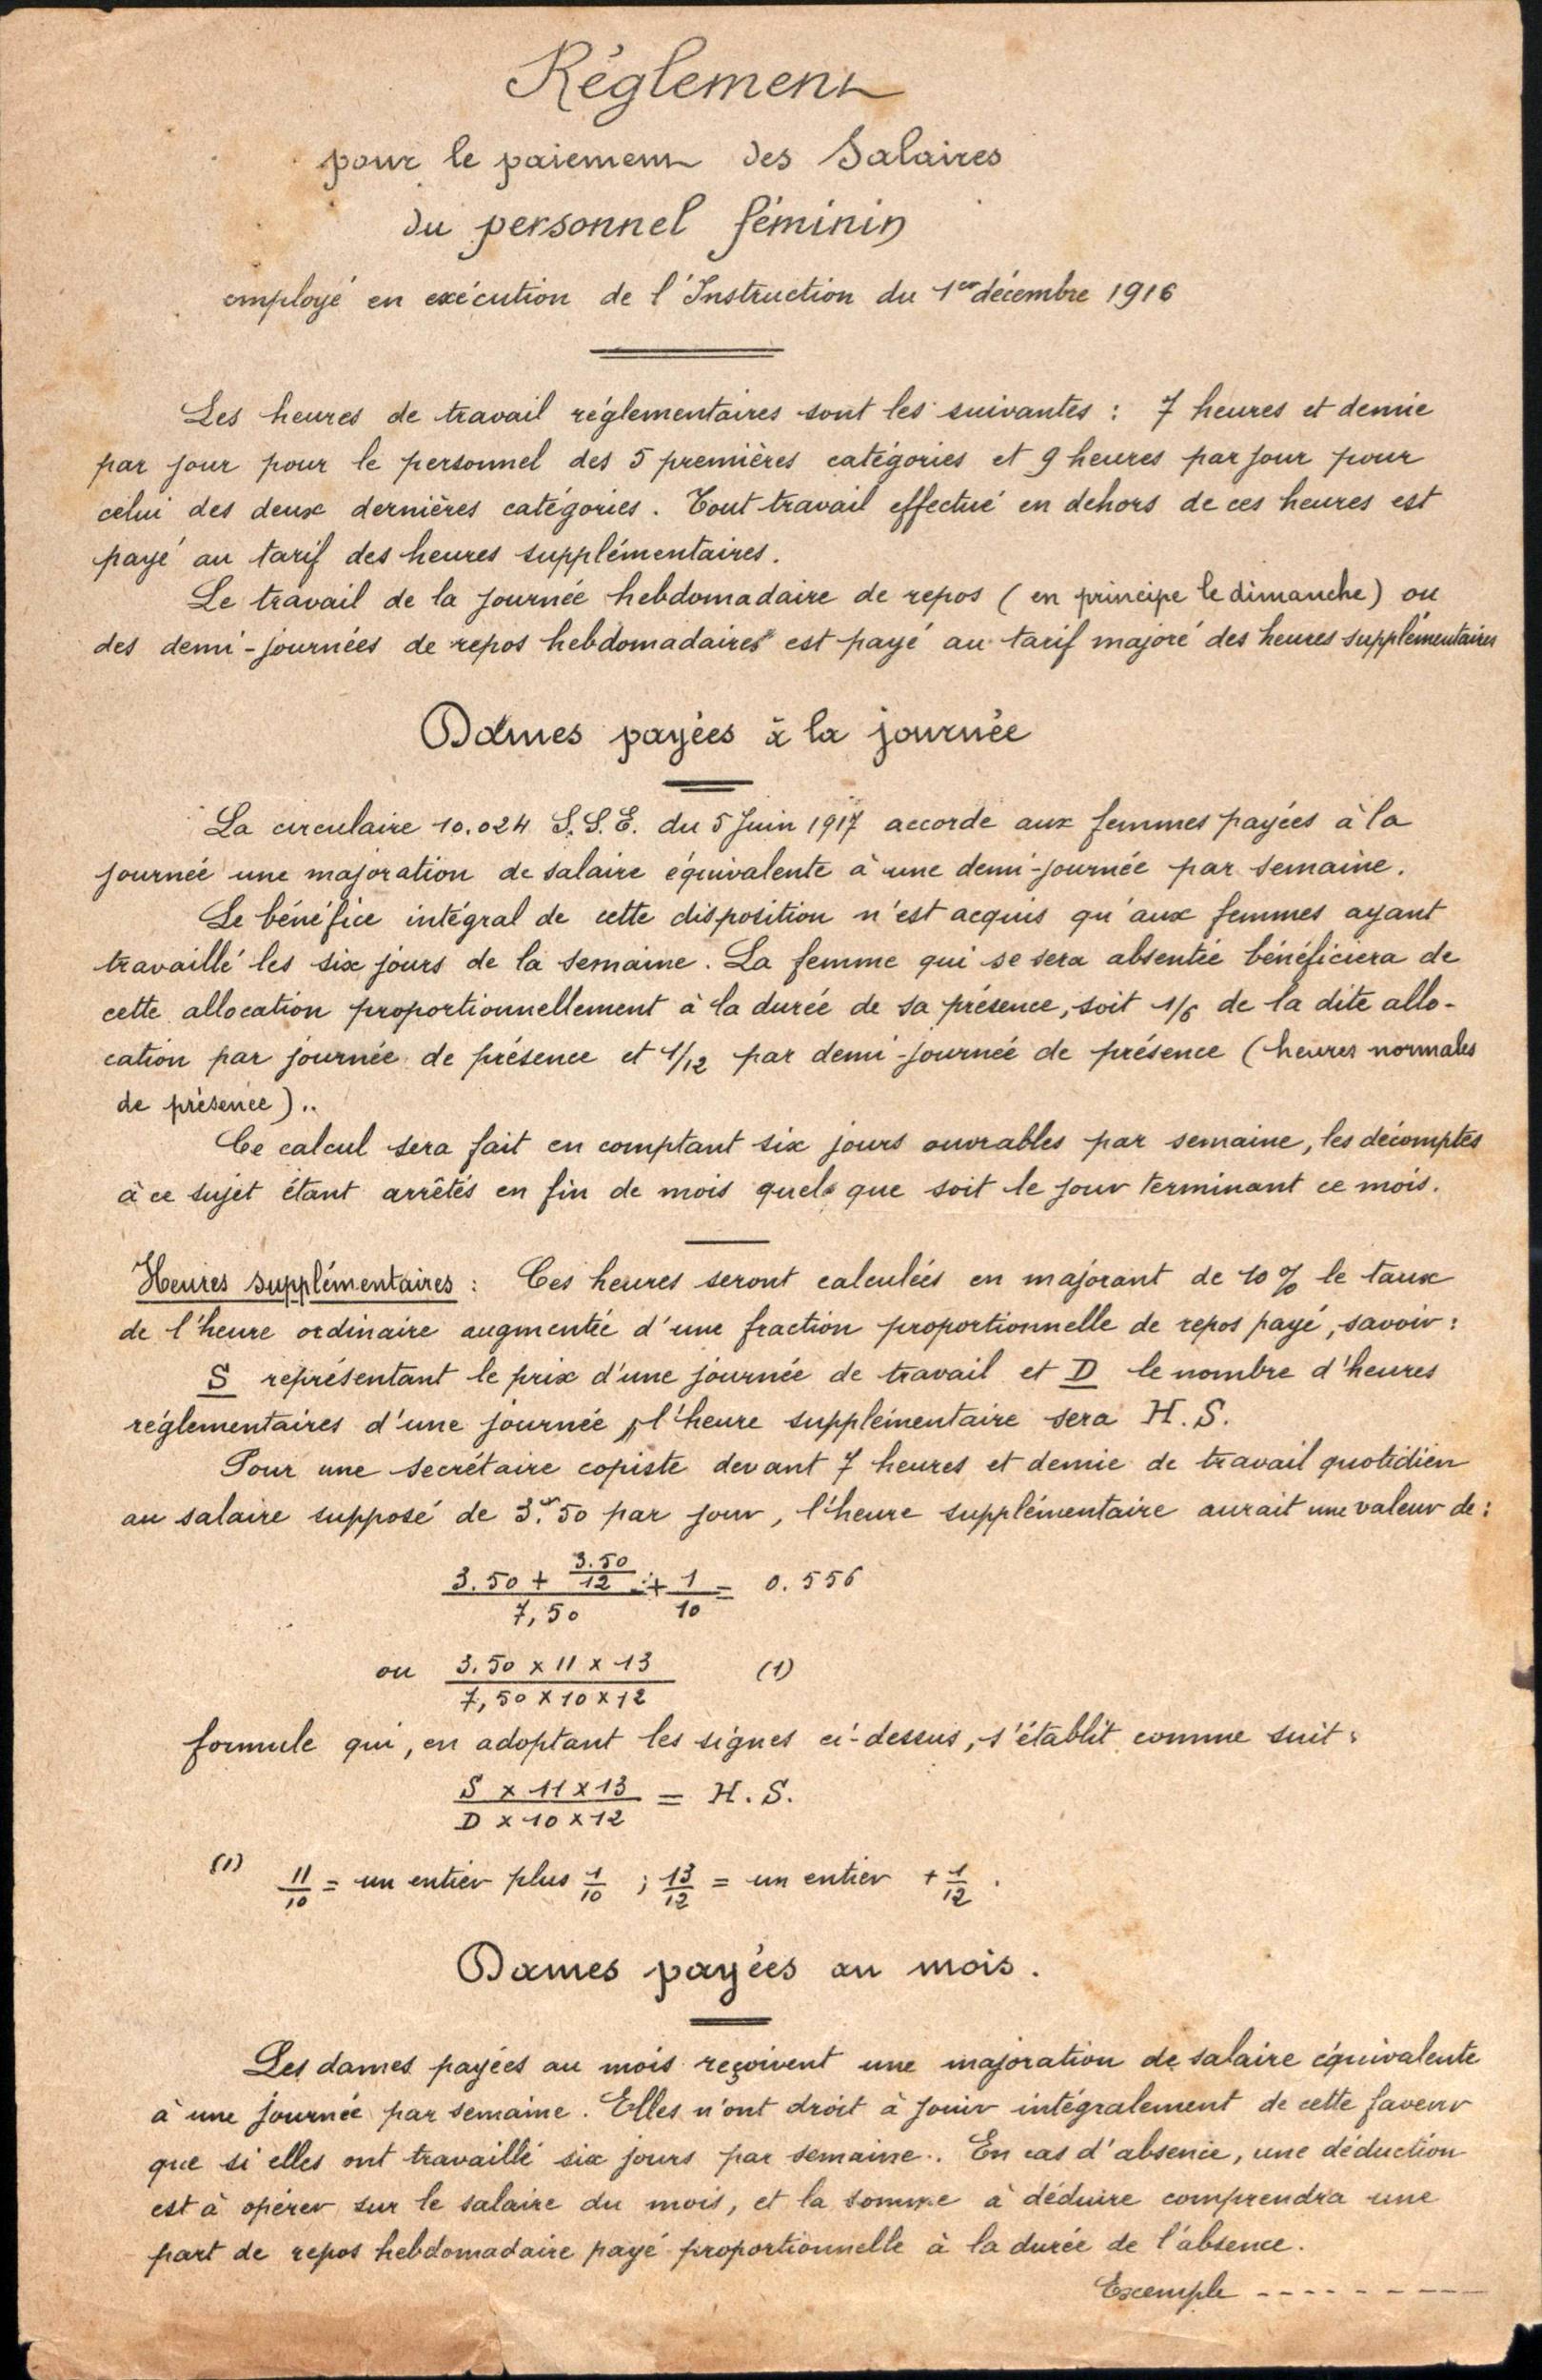 Réglement
pour le paiement des Salaires
du personnel féminin
employé en exécution de l'Instruction du 1er décembre 1916
Les heures de travail réglementaires sont les suivantes : 7 heures et demie
par jour pour le personnel des 5 premières catégories et 9 heures par jour pour
celui des deux dernières catégories. Tout travail effectué en dehors de ces heures est
payé au tarif des heures supplémentaires.
Le travail de la journée hebdomadaire de repos (en principe le dimanche) ou
des demi-journées de repos hebdomadaires est payé au tarif majoré des heures supplémentaires
Dames payées à la journée
La circulaire 10.024 S.S.E. du 5 Juin 1917 accorde aux femmes payées à la
journée une majoration de salaire équivalente à une demi-journée par semaine.
Le bénéfice intégral de cette disposition n'est acquis qu'aux femmes ayant
travaillé les six jours de la semaine. La femme qui se sera absentée bénéficiera de
cette allocation proportionnellement à la durée de sa présence, soit 1/6 de la dite allo-
cation par journée de présence et 1/12 par demi-journée de présence (heures normales
de présence)..
Ce calcul sera fait en comptant six jours ouvrables par semaine, les décomptes
à ce sujet étant arrêtés en fin de mois quel que soit le jour terminant ce mois.
Heures supplémentaires : Ces heures seront calculées en majorant de 10 % le taux
de l'heure ordinaire augmentée d'une fraction proportionnelle de repos payé, savoir :
S représentant le prix d'une journée de travail et D le nombre d'heures
réglementaires d'une journée, l'heure supplémentaire sera H.S.
Pour une secrétaire copiste devant 7 heures et demie de travail quotidien
au salaire supposé de 3.fr50 par jour, l'heure supplémentaire aurait une valeur de :
3.50
3.50 + 12 + 1 = 0.556
7,50 10
ou 3.50 x 11 x 13 (1)
7,50 x 10 x 12
formule qui, en adoptant les signes ci-dessus, s'établit comme suit :
S x 11 x 13 = H.S.
D x 10 x 12
(1) 11/10 = un entier plus 1/10 ; 13/12 = un entier + 1/12 .
Dames payées au mois.
Les dames payées au mois reçoivent une majoration de salaire équivalente
à une journée par semaine. Elles n'ont droit à jouir intégralement de cette faveur
que si elles ont travaillé six jours par semaine.. En cas d'absence, une déduction
est à opérer sur le salaire du mois, et la somme à déduire comprendra une
part de repos hebdomadaire payé proportionnelle à la durée de l'absence.
Exemple ---------